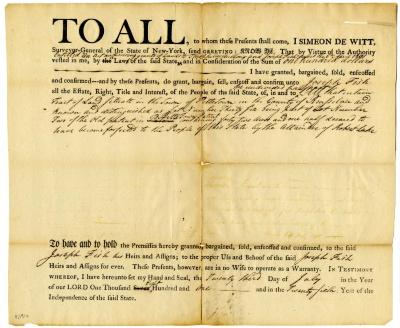 TO ALL, to whom these Presents shall come, I SIMEON DE WITT,
Surveyor-General of the State of New-York, send GREETING: KNOW YE, That by Virtue of the Authority
vested in me, by the Laws of the said State, and in Consideration of the Sum of one hundred dollars
I have granted, bargained, sold, enfeoffed
and confirmed—and by these Presents, do grant, bargain, sell, enfeoff and confirm unto Joseph Fish
all the Estate, Right, Title and Interest, of the People of the said State, of, in and to all that certain
Tract of Land in the Town of Pittstown in the County of Rensselaer and
known and distinguished as being part of Lot Number
Two of the Old patent in containing forty two acres and one half deemed to
have become forfeited to the People of this State by the attainder of Robert
To have and to hold the Premisses hereby granted, bargained, sold, enfeoffed and confirmed, to the said
Joseph Fish his Heirs and Assigns; to the proper Use and Behoof of the said Joseph Fish
Heirs and Assigns for ever. These Presents, however are in no Wise to operate as a Warranty. IN TESTIMONY
WHEREOF, I have hereunto set my Hand and Seal, the Twenty third Day of July in the Year
of our LORD One Thousand Hundred and one and in the Twenty sixth Year of the
Independence of the said State.